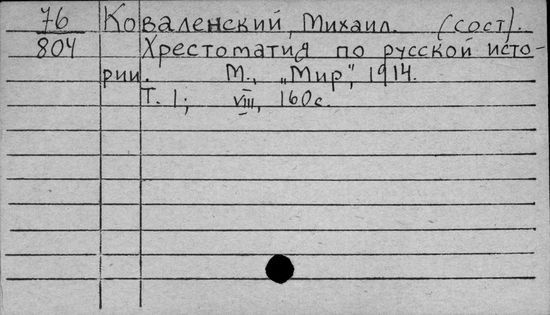 76 Коваленский, Михаил. (сост).
804 Хрестоматия по русской исто-
рии. М., „Мир", 1914.
Т. 1; VIII, 160 с.